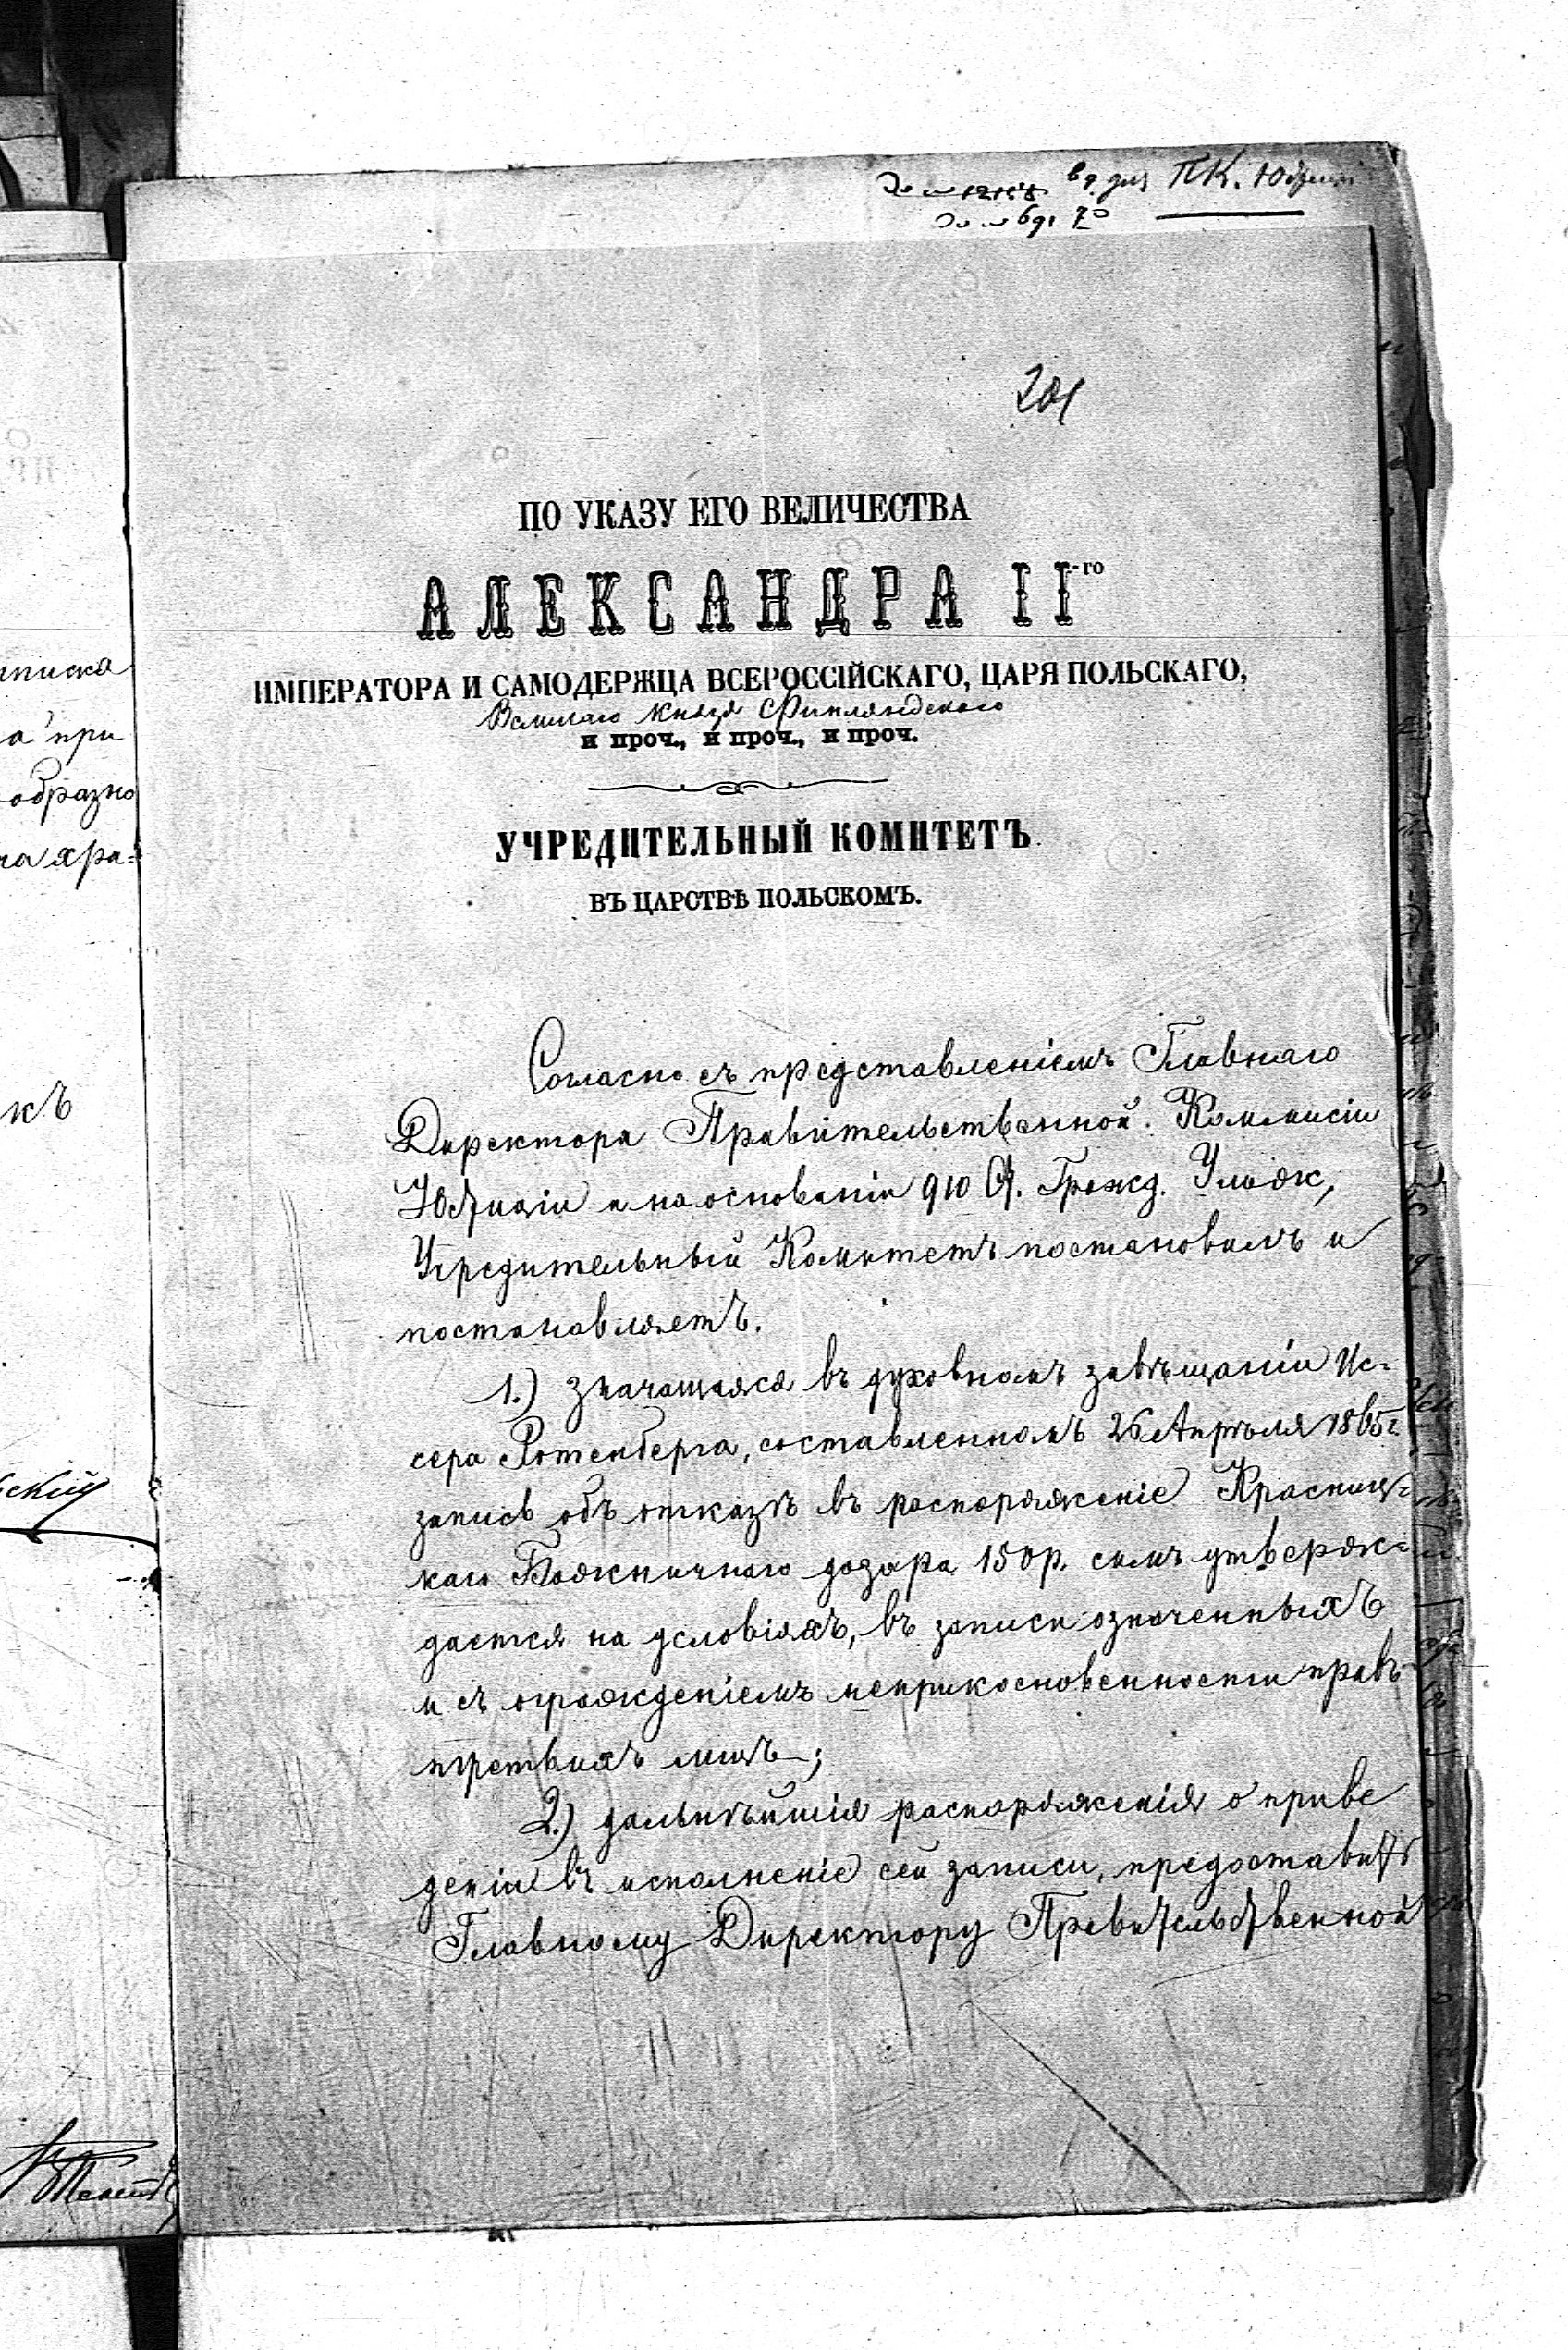 ПК. Юстиціи
201
ПО УКАЗУ ЕГО ВЕЛИЧЕСТВА
АЛЕКСАНДРА II-го
ИМПЕРАТОРА И САМОДЕРЖЦА ВСЕРОССІЙСКАГО, ЦАРЯ ПОЛЬСКАГО,
Великаго Князя Финляндскаго
и проч., и проч., и проч.
УЧРЕДИТЕЛЬНЫЙ КОМИТЕТЪ
ВЪ ЦАРСТВѢ ПОЛЬСКОМЪ.
Согласно съ представленіемъ Главнаго
Директора Правительственной Коммисіи
Юстиціи и на основаніи 910 Ст. Гражд. Улож,
Учредительный Комитетъ постановилъ и
постановляетъ.
1.) Значащаяся въ духовномъ завѣщаніи Ис-
сера Ротенберга, составленномъ 26 Апрѣля 1865 г.
запись объ отказѣ въ распоряженіе Красниц-
каго Божничнаго дозора 150 р. симъ утверж-
дается на условіяхъ, въ записи означенныхъ
и съ огражденіемъ неприкосновенности правъ
третьихъ лицъ;
2.) дальнѣйшія распоряженія о приве
деніи въ исполненіе сей записи, предоставить
Главному Директору Правительственной
аписка
а при
образно
на хра-
къ
скій